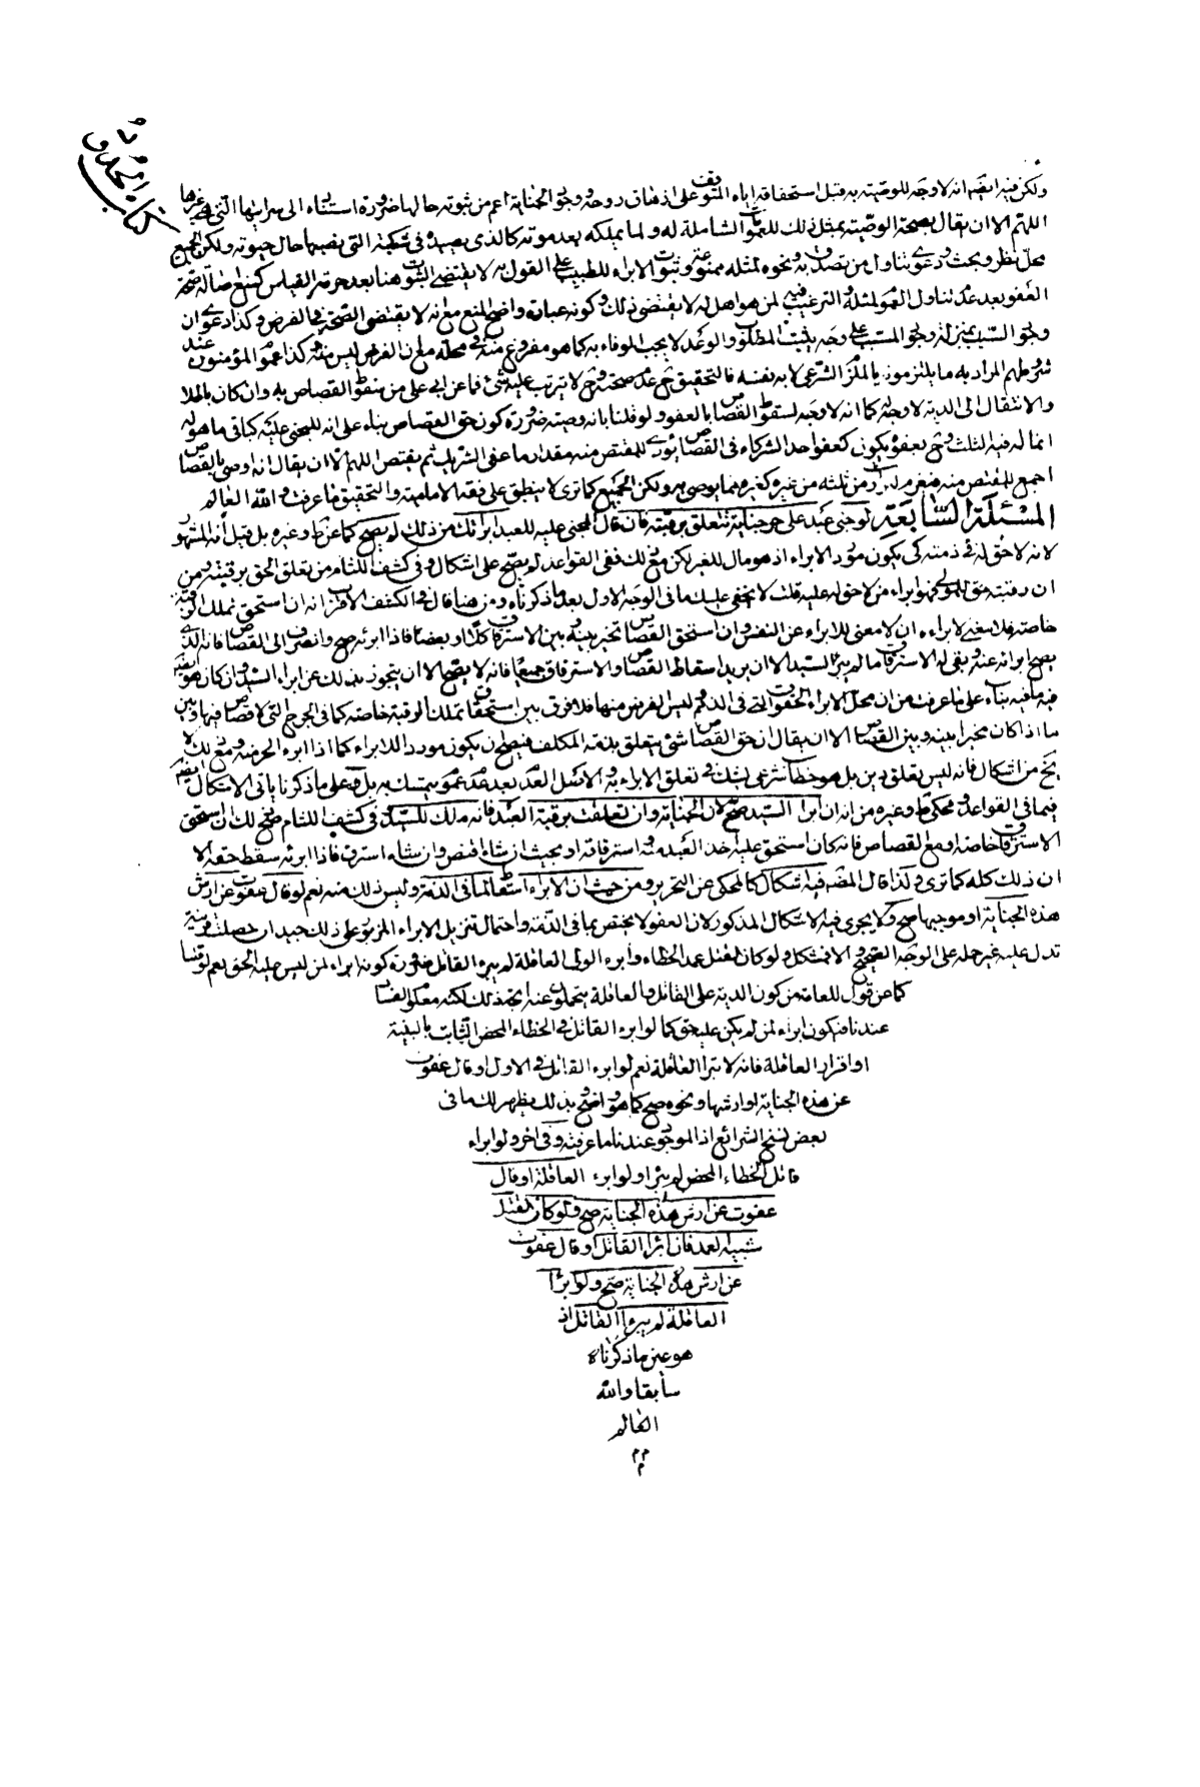 كتاب الحدود
ولكن فيه ايضا انه لا وجه للوصية به قبل استحقاقه اياه المتوقف على اذهاق روحه ووجود الجناية اعم من ثبوته حالها ضرورة استثناء الى سرايتها التى هى غيرها
اللهم الا ان يقال بصحة الوصية بمثل ذلك للعمومات الشاملة له ولما يملكه بعد موته كالذى يصيده فى شبكته التى نصبها حال حيوته ولكن الجميع
محل نظر وبحث ودعوى تناول من تصدق به ونحوه لمثله ممنوعة وثبوت الابراء للطبيب على القول به لا يقتضى الثبوت هنا بعد حرمة القياس كمنع اصالة صحة
العفو بعد عدم تناول العموم لمثله والترغيب فيه لمن هو اهل له لا يقتضى ذلك وكونه عبادة واضح المنع مع انه لا يقتضى الصحة فى الفرض وكذا دعوى ان
وجود السبب بمنزلة وجود المسبب على وجه يثبت المطلوب والوعد لا يجب الوفاء به كما هو مفروغ منه فى محله مع ان الفرض ليس منه كذا عموم المؤمنون عند
شروطهم المراد به ما يلتزمونه بالملزم الشرعى لا به نفسه فالتحقيق ح عدم صحته وح لا يترتب عليه شئ فما عن ابى على من سقوط القصاص به وان كان بلا
والانتقال الى الدية لا وجه له كما انه لا وجه لسقوط القصاص بالعفو ولو قلنا بانه وصية ضرورة كون حق القصاص بناء على انه للمجنى عليه كباقى ماله
انما له فيه الثلث وح بعفوه يكون كعفو احد الشركاء فى القصاص يؤدى للمقتص منه مقدار ما عفى الشريك ثم يقتص اللهم الا ان يقال انه اوصى بالقصاص
اجمع للمقتص منه من ثلثه من غيره كغيره مما يوصى به ولكن الجميع كما ترى لا ينطبق على فقه الامامية والتحقيق ما عرفت والله العالم
المسئلة السابعة لو جنى عبد على حر جناية تتعلق برقبته فان قال المجنى عليه للعبد ابرأتك من ذلك لم يصح كما عن ط وغيره بل قيل انه المشهور
لانه لا حق له فى ذمته كى يكون مورد الابراء اذ هو مال للغير لكن مع ذلك ففى القواعد لم يصح على اشكال وفى كشف اللثام من تعلق الحق برقبته ومن
ان رقبته حق للمولى فهو ابراء من لا حق له عليه قلت لا يخفى عليك ما فى الوجه الاول بعد ما ذكرناه ومن هنا قال فى الكشف الاقرب انه ان استحق تملك الرقبة
خاصة فلا معنى لابراءه ان لا معنى للابراء عن النفس وان استحق القصاص تخير بينه وبين الاسترقاق كلا او بعضا فاذا ابرئه صح وانصرف الى القصاص فانه الذى
يصح ابرائه عنه وبقى له الاسترقاق ما لم يبرء السيد الا ان يريد اسقاط القصاص والاسترقاق جميعا فانه لا يصح الا ان يتجوز بذلك عن ابراء السيد وان كان هو ايضا
فيه ما فيه بناء على ما عرفت من ان محل الابراء الحقوق التى فى الذمم ليس الفرض منها فلا فرق بين استحقاق تملك الرقبة خاصة كما فى الجرح التى لا قصاص فيها وبين
ما اذا كان مخيرا بينه وبين القصاص الا ان يقال ان حق القصاص شئ يتعلق بذمة المكلف فيصلح ان يكون موردا للابراء كما اذا ابرء الحر منه ومع ذلك لا
يخ من اشكال فانه ليس تعلق دين بل هو خطاب شرعى يشك فى تعلق الابراء به الاصل العدم بعد عدم عموم يتمسك به بل وعلى ما ذكرنا ياتى الاشكال ايضا
فيما فى القواعد ومحكى ط وغيره من انه ان ابرا السيد صح لان الجناية وان تعلقت برقبة العبد فانه ملك للسيد فى كشف اللثام صح ذلك ان استحق
الاسترقاق خاصة او مع القصاص فانه كان استحق عليه اخذ العبد منه استرقاقه او بحيث ان شاء اقتص وان شاء استرق فاذا ابرئه سقط حقه الا
ان ذلك كله كما ترى ولذا قال المصنف فيه اشكال كالمحكى عن التحرير ومن حيث ان الابراء اسقاط لما فى الذمة وليس ذلك منه نعم لو قال عفوت عن ارش
هذه الجناية او موجبها صح ولا يجرى فيه الاشكال المذكور لان العفو لا يختص بما فى الذمة واحتمال تنزيل الابراء المزبور على ذلك جيد ان حصلت قرينة
تدل عليه غير حمله على الوجه الصحيح والا فمشكل ولو كان القتل عمد الخطاء وابرء الولى العاقلة لم يبرء القاتل ضرورة كونه ابراء لمن ليس عليه الحق نعم لو قلنا
كما عن قول للعامة من كون الدية على القاتل والعاقلة يتحملون عنه اتجه ذلك لكنه معلوم الفساد
عندنا فيكون ابراء لمن لم يكن عليه حق كما لو ابرء القاتل فى الخطاء المحض الثابت بالبينة
او اقرار العاقلة فانه لا تبرا العاقلة نعم لو ابرء القاتل فى الاول او قال عفوت
عن هذه الجناية او ارشها ونحوه صح كما هو واضح بذلك يظهر لك ما فى
بعض نسخ الشرائع اذ الموجود عندنا ما عرفته وفى اخر ولو ابراء
قاتل الخطاء المحض لم يبرا ولو ابرء العاقلة او قال
عفوت عن ارش هذه الجناية صح ولو كان القتل
شبيه العمد فان ابرا القاتل او قال عفوت
عن ارش هذه الجناية صح ولو ابرا
العاقلة لم يبرا القاتل اذ
هو عين ما ذكرناه
سابقا والله
العالم